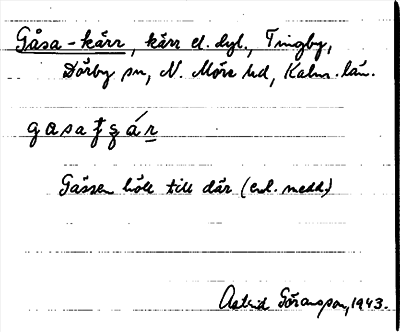 Gåsa-kärr, kärr el. dyl., Tingby,
Dörby sn, N. Möre hd, Kalm. län.
Gässen höll till där (enl. medd.)
Astrid Göransson, 1943.